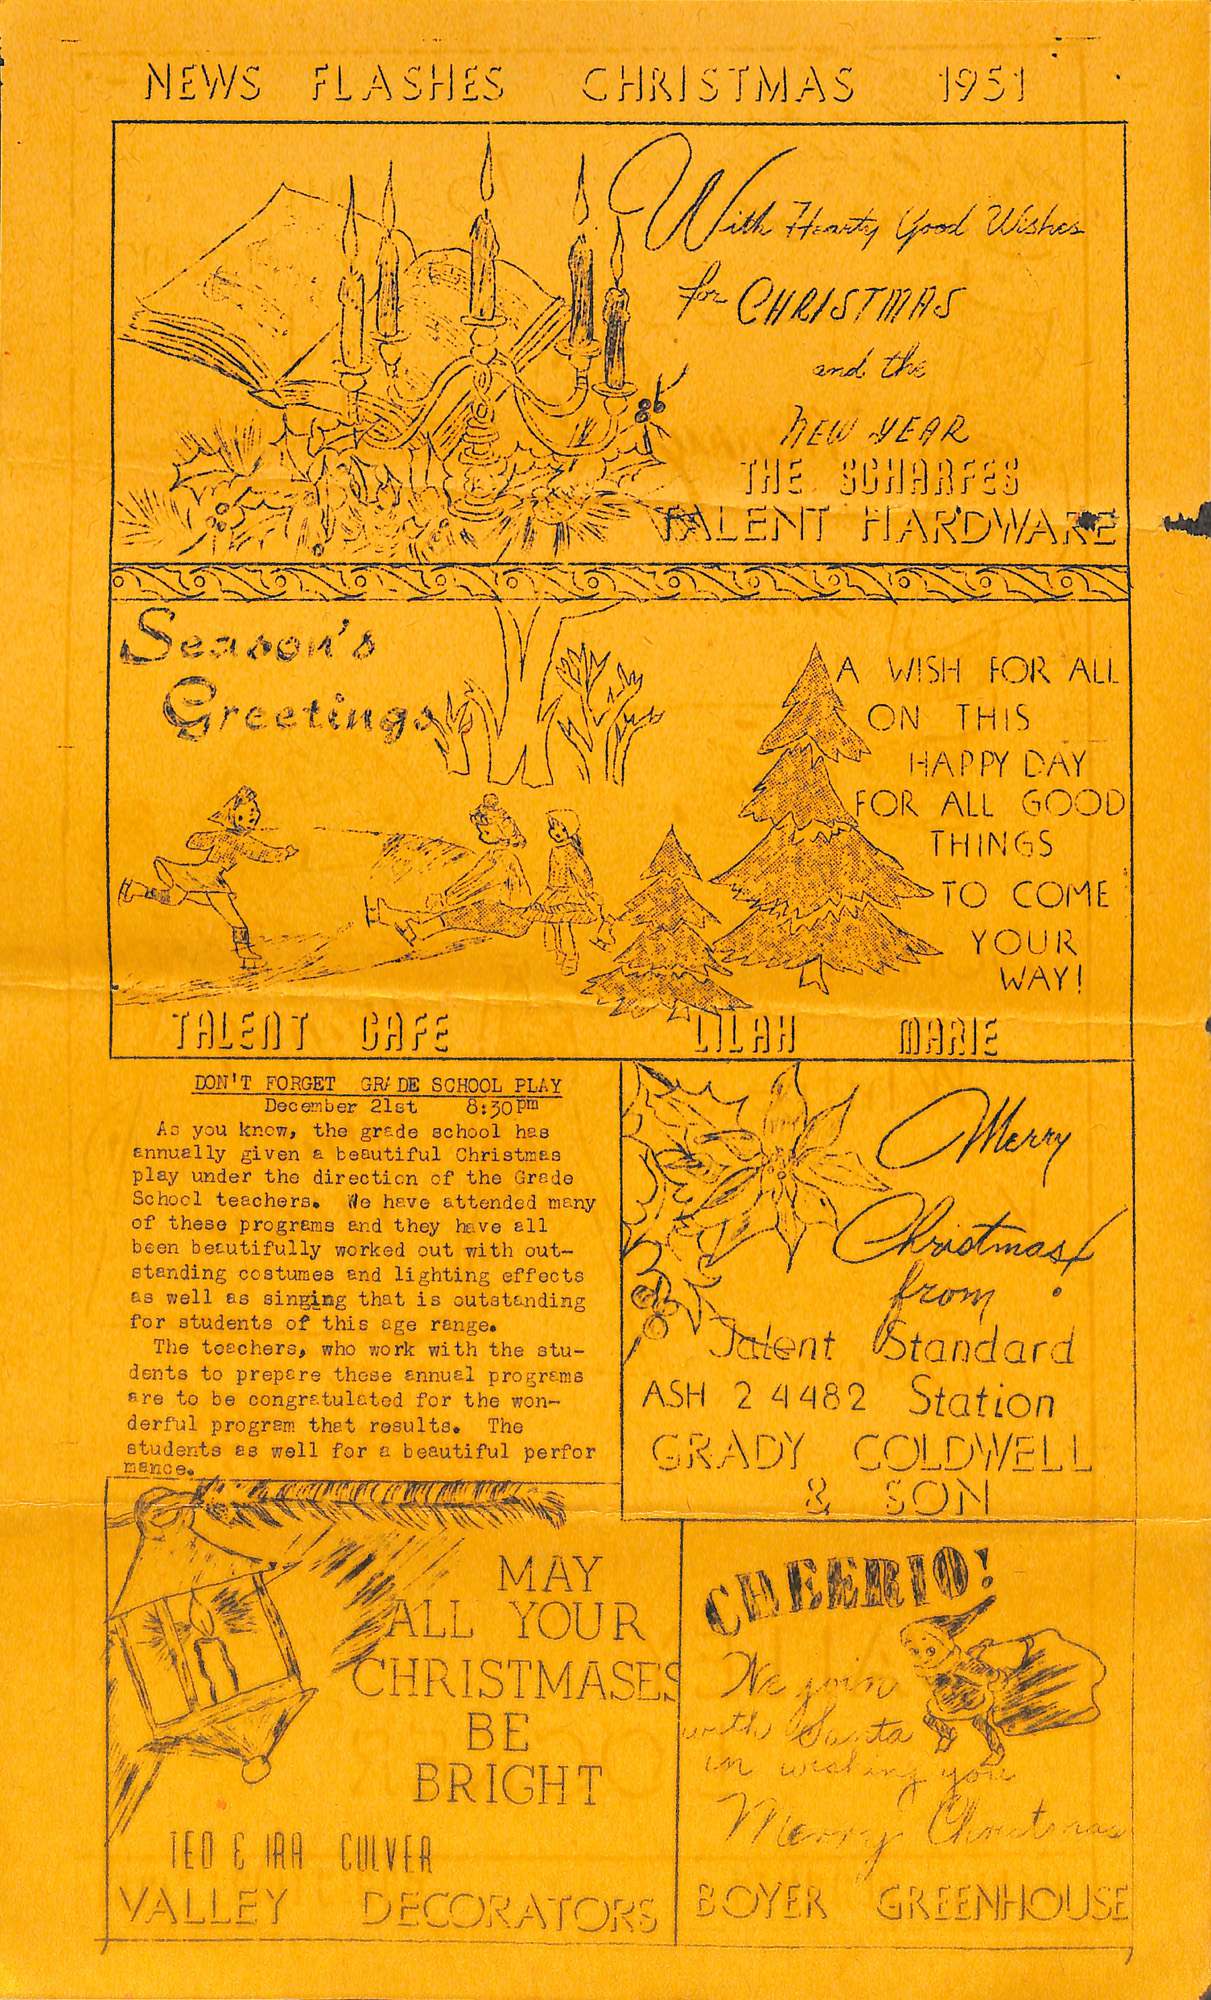 NEWS FLASHES CHRISTMAS 1951
With Hearty Good Wishes
for CHRISTMAS
and the
NEW YEAR
THE SCHARFES
TALENT HARDWARE
Season's
Greetings
A WISH FOR ALL
ON THIS
HAPPY DAY
FOR ALL GOOD
THINGS
TO COME
YOUR
WAY!
TALENT CAFE LILAH MARIE
DON'T FORGET GRADE SCHOOL PLAY
December 21st 8:30pm
As you know, the grade school has
annually given a beautiful Christmas
play under the direction of the Grade
School teachers. We have attended many
of these programs and they have all
been beautifully worked out with out-
standing costumes and lighting effects
as well as singing that is outstanding
for students of this age range.
The teachers, who work with the stu-
dents to prepare these annual programs
are to be congratulated for the won-
derful program that results. The
students as well for a beautiful perfor
mance.
Merry
Christmas!
from
Talent Standard
ASH 2 4482 Station
GRADY COLDWELL
& SON
MAY
ALL YOUR
CHRISTMASES
BE
BRIGHT
TED & IRA CULVER
VALLEY DECORATORS
CHEERIO!
We join
with Santa
in wishing you
Merry Christmas
BOYER GREENHOUSE